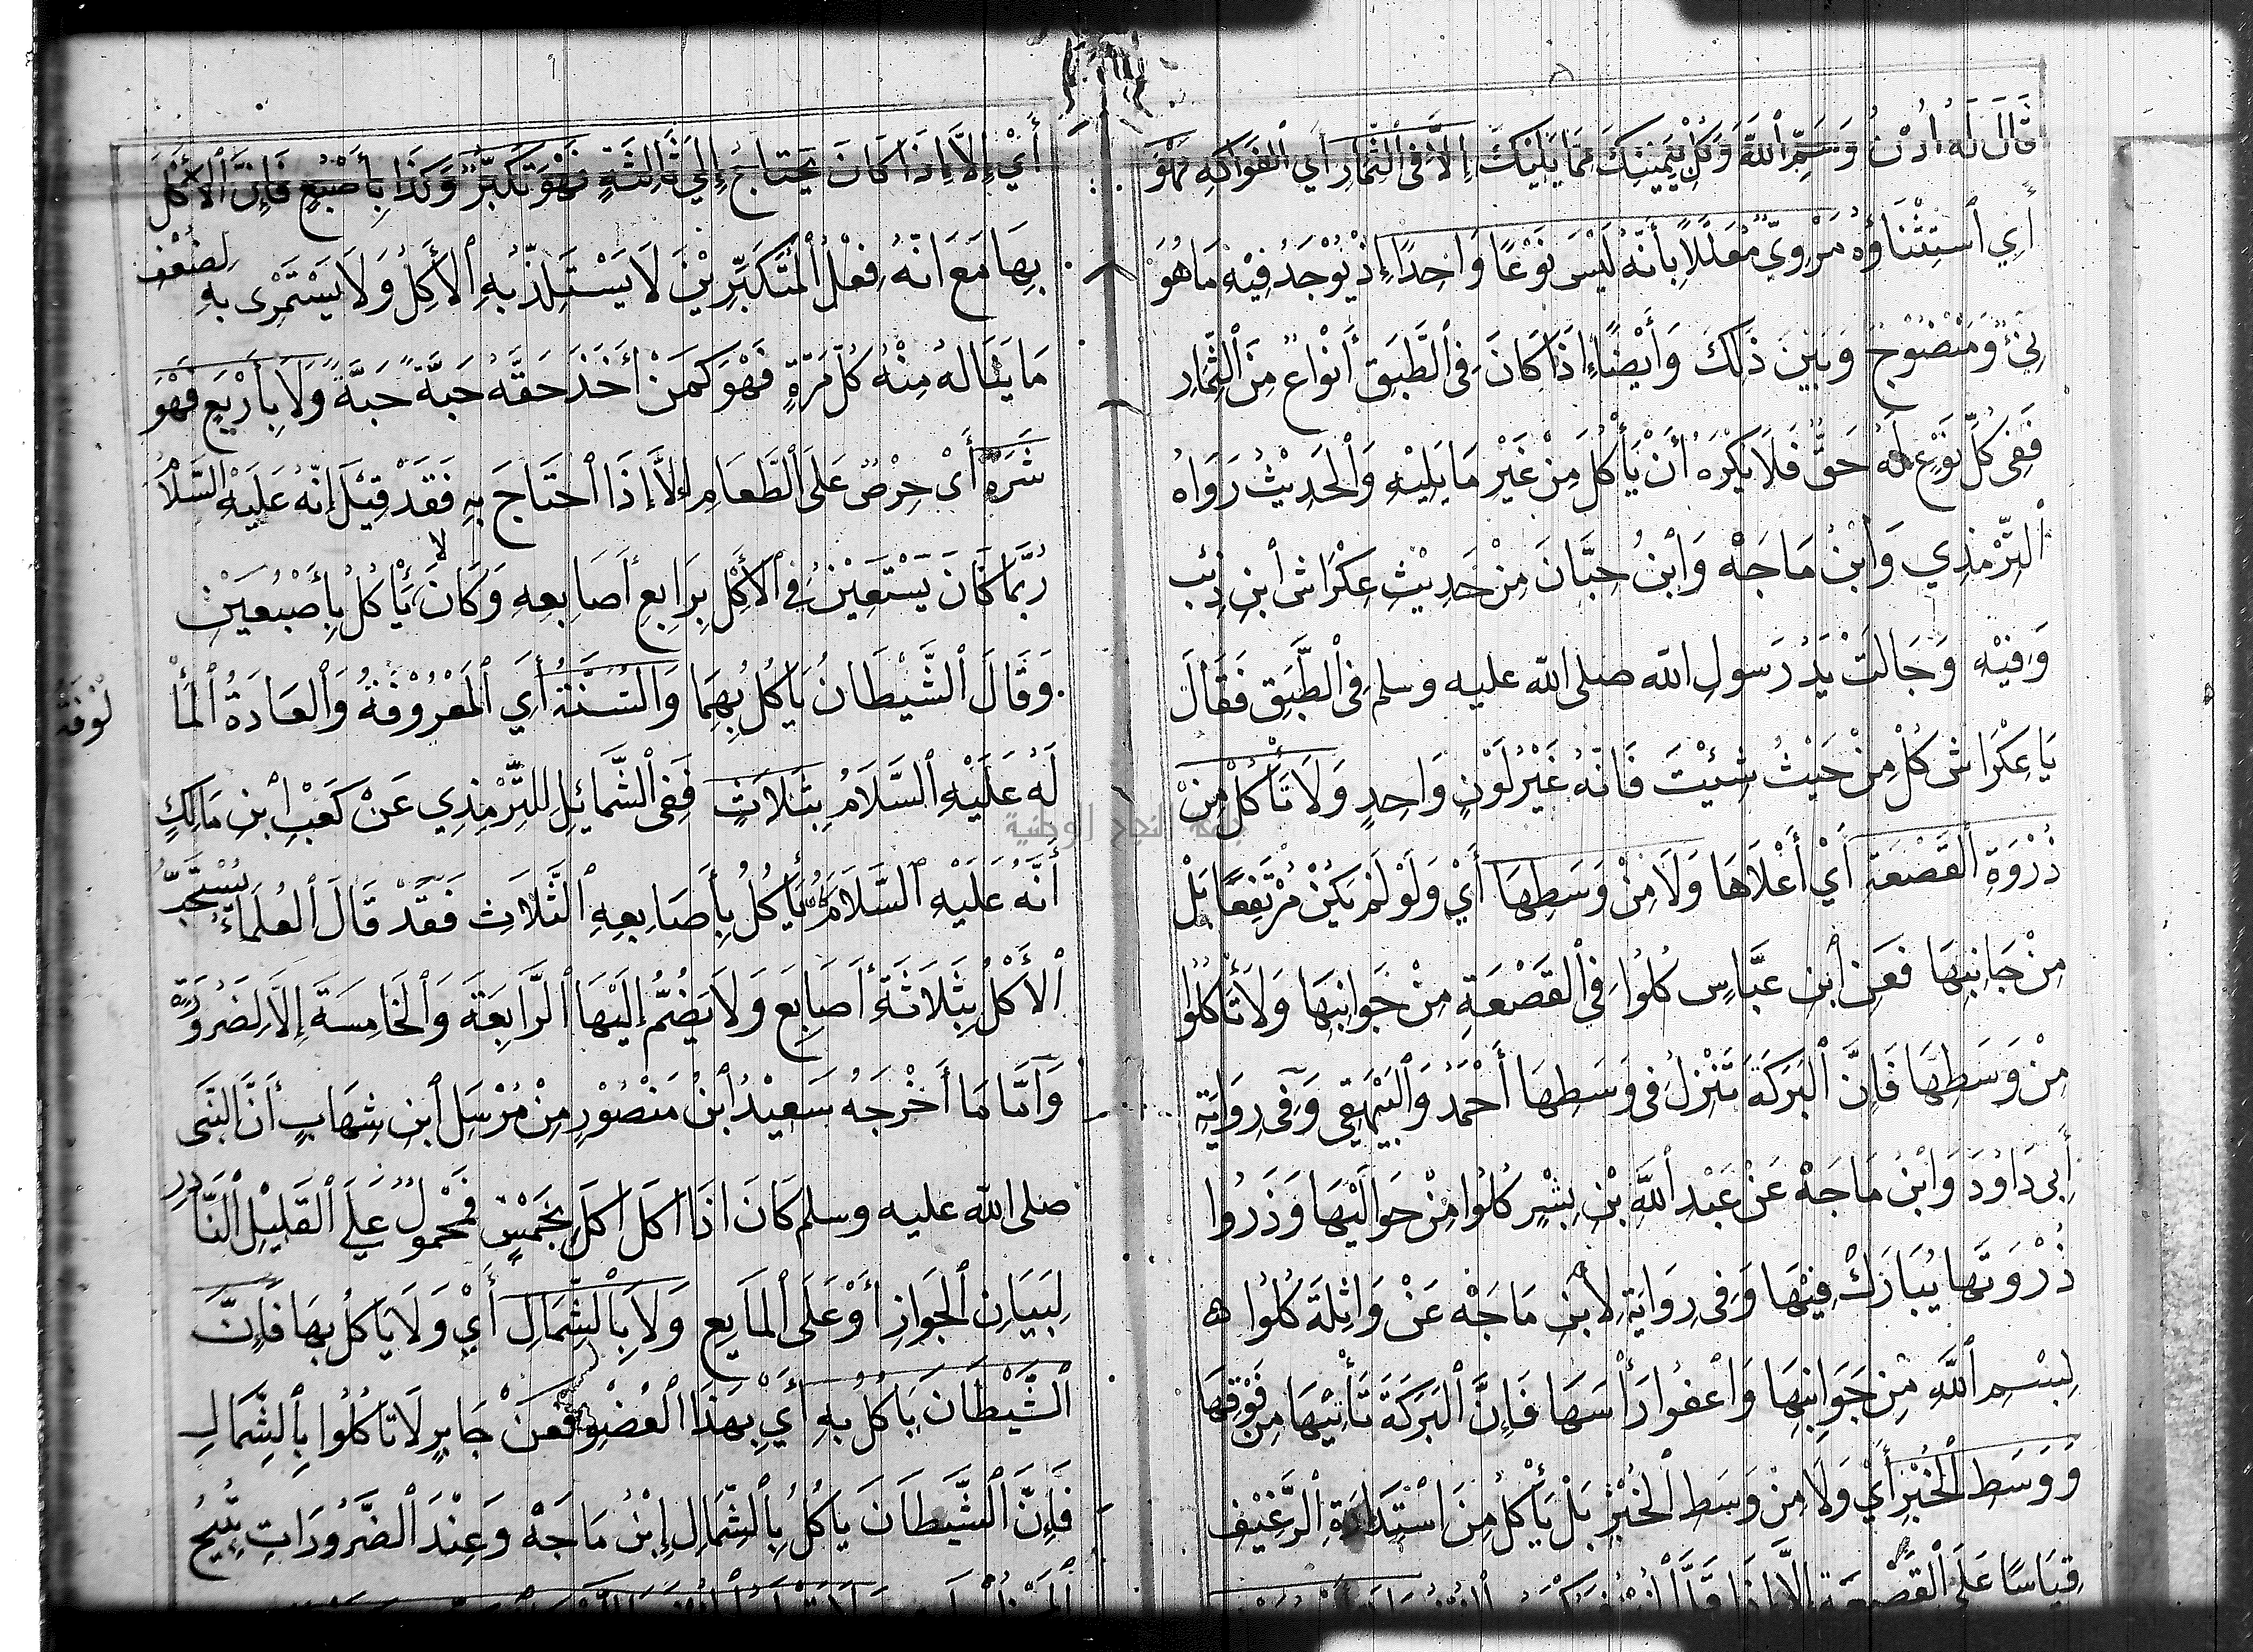 قَالَ لَهُ ادْنُ وَسَمِّ اللهَ وَكُلْ بِيَمِينِكَ مِمَّا يَلِيكَ إِلَّا فِي الثِّمَارِ أَيِ الْفَوَاكِهِ فَهُوَ
أَيِ اسْتِثْنَاؤُهُ مَرْوِيٌّ مُعَلَّلًا بِأَنَّهُ لَيْسَ نَوْعًا وَاحِدًا إِذْ يُوْجَدُ فِيْهِ مَا هُوَ
نِيْءٌ وَمَنْضُوْجٌ وَبَيْنَ ذَلِكَ وَأَيْضًا إِذَا كَانَ فِي الطَّبَقِ أَنْوَاعٌ مِنَ الثِّمَارِ
فَفِي كُلِّ نَوْعٍ لَهُ حَقٌّ فَلَا يُكْرَهُ أَنْ يَأْكُلَ مِنْ غَيْرِ مَا يَلِيْهِ وَالْحَدِيْثُ رَوَاهُ
التِّرْمِذِي وَابْنُ مَاجَهْ وَابْنُ حِبَّانَ مِنْ حَدِيْثِ عِكْرَاشِ ابْنِ ذِئْبٍ
وَفِيْهِ وَجَالَتْ يَدُ رَسُولِ الله صلى الله عليه وسلم فِي الطَّبَقِ فَقَالَ
يَا عِكْرَاشُ كُلْ مِنْ حَيْثُ شِئْتَ فَانَّهُ غَيْرُ لَوْنٍ وَاحِدٍ وَلَا تَأْكُلْ مِنْ
ذُرْوَةِ الْقَصْعَةِ أَيْ أَعْلَاهَا وَلَا مِنْ وَسَطِهَا أَيْ وَلَوْ لَمْ يَكُنْ مُرْتَفِعًا بَلْ
مِنْ جَانِبِهَا فَعَنِ ابْنِ عَبَّاسٍ كُلُوا فِي الْقَصْعَةِ مِنْ جَوَانِبِهَا وَلَا تَأْكُلُوا
مِنْ وَسَطِهَا فَإِنَّ الْبَرَكَةَ تَنْزِلُ فِي وَسَطِهَا أَحْمَدُ وَالْبَيْهَقِي وَفِي رِوَايَةِ
أَبِي دَاوُدَ وَابْنُ مَاجَهْ عَنْ عَبْدِ اللهِ بْنِ بِشْرٍ كُلُوا مِنْ حَوَالَيْهَا وَذَرُوا
ذُرْوَتَهَا يُبَارَكْ فِيْهَا وَفِي رِوَايَةٍ لِابْنِ مَاجَهْ عَنْ وَاثِلَةَ كُلُوا
بِسْمِ اللهِ مِنْ جَوَانِبِهَا وَاعْفُوا رَأْسَهَا فَإِنَّ الْبَرَكَةَ تَأْتِيْهَا مِنْ فَوْقِهَا
وَوَسَطِ الْخُبْزِ أَيْ وَلَا مِنْ وَسَطِ الْخُبْزِ بَلْ يَأْكُلُ مِنَ اسْتِدَارَةِ الرَّغِيْفِ
قِيَاسًا عَلَى الْقَصْعَةِ إِلَّا إِذَا
أَيْ إِلَّا إِذَا كَانَ يَحْتَاجُ إِلَى ثَالِثَةٍ فَهُوَ تَكَبُّرٌ وَكَذَا بِأُصْبُعٍ فَإِنَّ الْأَكْلَ
بِهَا مَعَ انَّهُ فِعْلُ الْمُتَكَبِّرِيْنَ لَا يَسْتَلِذُّ بِهِ الْأَكِلُ وَلَا يَسْتَمْرِى بِهِ لِضُعْفِ
مَا يَنَالهُ مِنْهُ كُلَّ مَرَّةٍ فَهْوَ كَمَنْ أَخَذَ حَقَّهُ حَبَّةً حَبَّةً وَلَا بِأَرْبَعٍ فَهْوَ
شَرَهٌ أَىْ حِرْصٌ عَلَى الطَّعَامِ إِلَّا إِذَا احْتَاجَ بِهِ فَقَدْ قِيْلَ إِنَّهُ عَلَيْهِ السَّلَامُ
رُبَّمَا كَانَ يَسْتَعِيْنُ فِي الْأَكْلِ بِرَابِعِ أَصَابِعِهِ وَكَانَ لا يَأْكُلُ بِأُصْبُعَيْنِ
وَقَالَ الشَّيْطَانُ يَاكُلُ بِهِمَا وَالسُّنَّةُ أَيِ الْمَعْرُوْفَةُ وَالْعَادَةُ الْمَأْ
لُوْفَةُ
لَهُ عَلَيْهِ السَّلَامُ بِثَلَاثٍ فَفِي الشَّمَائِلِ لِلتِّرْمِذِي عَنْ كَعْبِ ابْنِ مَالِكٍ
أَنَّهُ عَلَيْهِ السَّلَامُ كَانَ يَأْكُلُ بِأَصَابِعِهِ الثَّلَاثِ فَقَدْ قَالَ الْعُلَمَاءُ يُسْتَحَبُّ
الْأَكْلُ بِثَلَاثَةِ أَصَابِعَ وَلَا يَضُمُّ إِلَيْهَا الرَّابِعَةَ وَالْخَامِسَةَ إِلَّا لِضَرُوْرَةٍ
وَامَّا مَا أَخْرَجَهُ سَعِيْدُ ابْنُ مَنْصُوْرٍ مِنْ مُرْسَلِ ابْنِ شِهَابٍ أَنَّ النَّبِى
صلى الله عليه وسلم كَانَ اذَا اكَلَ اكَلَ بِخَمْسٍ فَمَحْمُولٌ عَلَى الْقَلِيْلِ النَّادِرِ
لِبَيَانِ الْجَوَازِ أَوْ عَلَى الْمَايِعِ وَلَا بِالشِّمَالِ أَيْ وَلَا يَاكُلُ بِهَا فَإِنَّ
الشَّيْطَانَ يَاكُلُ بِهِ أَيْ بِهَذَا الْعُضْوِ فَعَنْ جَابِرٍ لَا تَاكُلُوا بِالشِّمَالِ
فَإِنَّ الشَّيْطَانَ يَاكُلُ بِالشِّمَالِ إِبْنُ مَاجَهْ وَعِنْدَ الضَّرُورَاتِ تُبِيْحُ
جامعة النجاح الوطنية